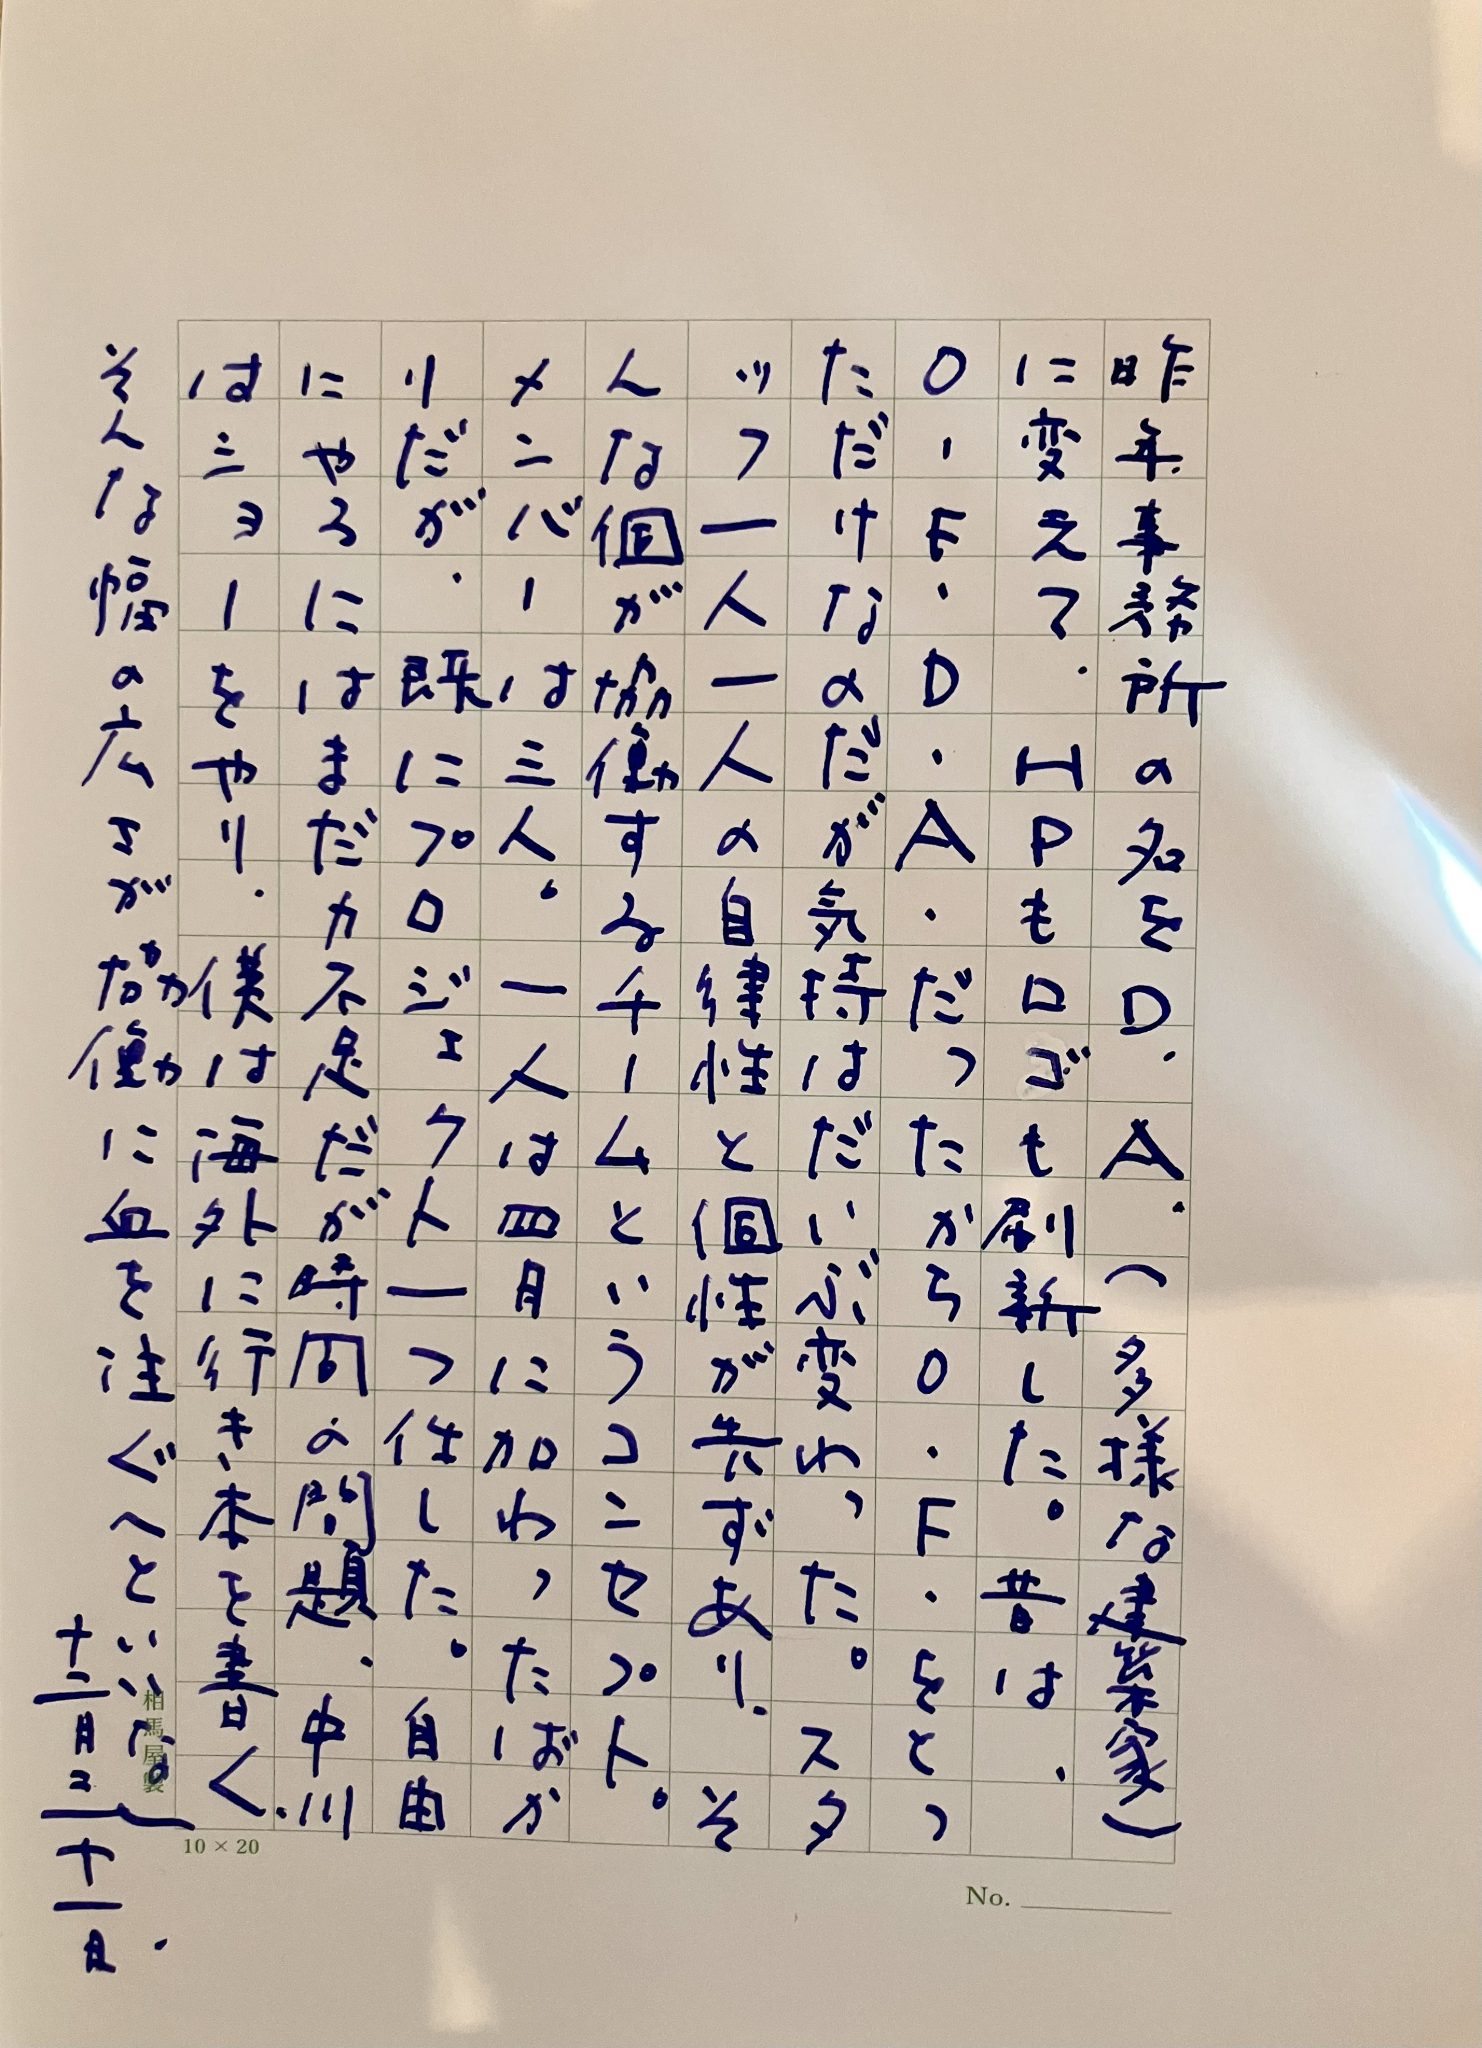 昨年、事務所の名をD.A.(多様な建築家)
に変えて、HPもロゴも刷新した。昔は、
O.F.D.A.だったからO.F.をとっ
ただけなのだが気持はだいぶ変わった。スタ
ッフ一人一人の自律性と個性が失ずあり、そ
んな個が協働するチームというコンセプト。
メンバーは三人。一人は四月に加わったばか
りだが、既にプロジェクト一つ任した。自由
にやるにはまだ力不足だが時間の問題、中川
はミヨーをやり、僕は海外に行き本を書く、
そんな幅の広さが協働に血を注ぐといいな。
十二月二十一日
相馬屋製
10 × 20
No.